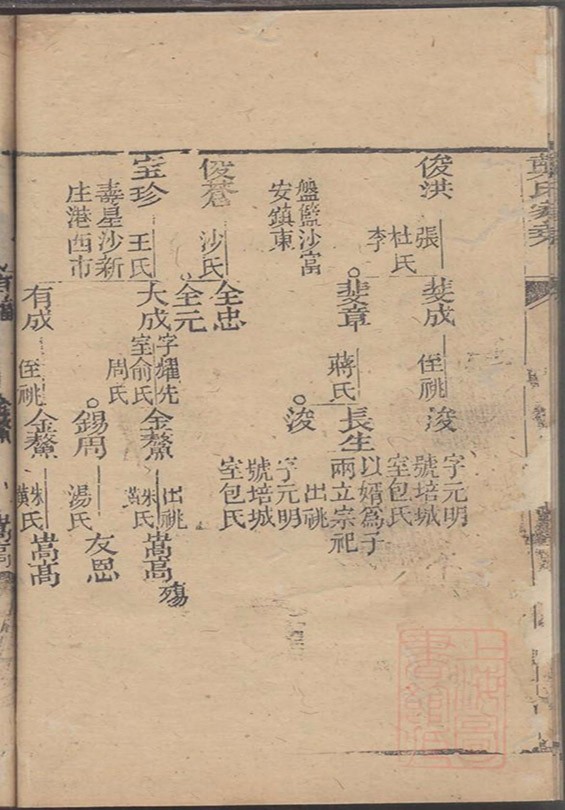 俊洪
張
杜氏
李
盤籃沙富
安鎮東
斐成
侄祧
浚
字元明
號培城
室包氏
斐章
蔣氏
長生
以婿為子
兩立宗祀
浚
出祧
字元明
號培城
室包氏
俊蒼
沙氏
全忠
全元
宝珍
王氏
壽星沙新
庄港西市
大成
字耀先
室俞氏
周氏
金鰲
出祧
朱氏
黃
嵩高
殤
錫周
湯氏
友恩
有成
侄祧
金鰲
朱氏
黃
嵩高